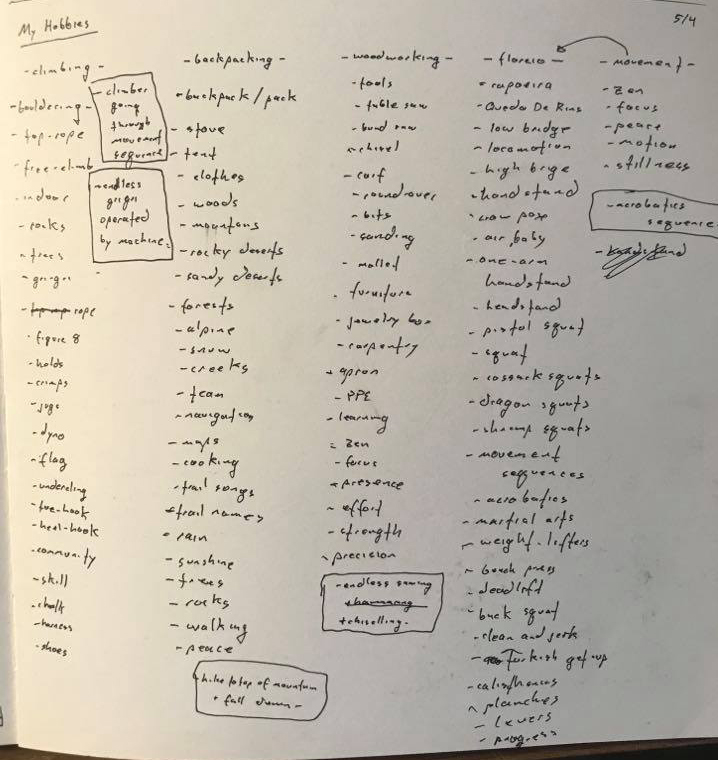 My Hobbies
5/4
- climbing -
- bouldering -
- top-rope
- free-climb
- indoor
- rocks
- trees
- grigri
- rope
- figure 8
- holds
- crimps
- jugs
- dyno
- flag
- undercling
- toe-hook
- heel-hook
- community
- skill
- chalk
- harness
- shoes
- climber
going
through
movement
sequence
- endless
grigri
operated
by machine.
- backpacking -
- backpack / pack
- stove
- tent
- clothes
- woods
- mountans
- rocky deserts
- sandy deserts
- forests
- alpine
- snow
- creeks
- team
- navigation
- maps
- cooking
- trail songs
- trail names
- rain
- sunshine
- trees
- rocks
- walking
- peace
- hike to top of mountain
+ fall down -
- woodworking -
- tools
- table saw
- band saw
- chisel
- carf
- roundover
- bits
- sanding
- mallet
- furniture
- jewelry box
- carpentry
- apron
- PPE
- learning
- zen
- focus
- presence
- effort
- strength
- precision
- endless sawing
hammering
+ chiselling -
- floreio -
- capoeira
- Queda De Rins
- low bridge
- locomotion
- high brige
- handstand
- crow pose
- air baby
- one-arm
handstand
- headstand
- pistol squat
- squat
- cossack squats
- dragon squats
- shrimp squats
- movement
sequences
- acrobatics
- martial arts
- weight-lifters
- bench press
- deadlift
- back squat
- clean and jerk
- Turkish get-up
- calisthenics
- planches
- levers
- progress
- movement -
- zen
- focus
- peace
- motion
- stillness
- acrobatics
sequence
- handstand